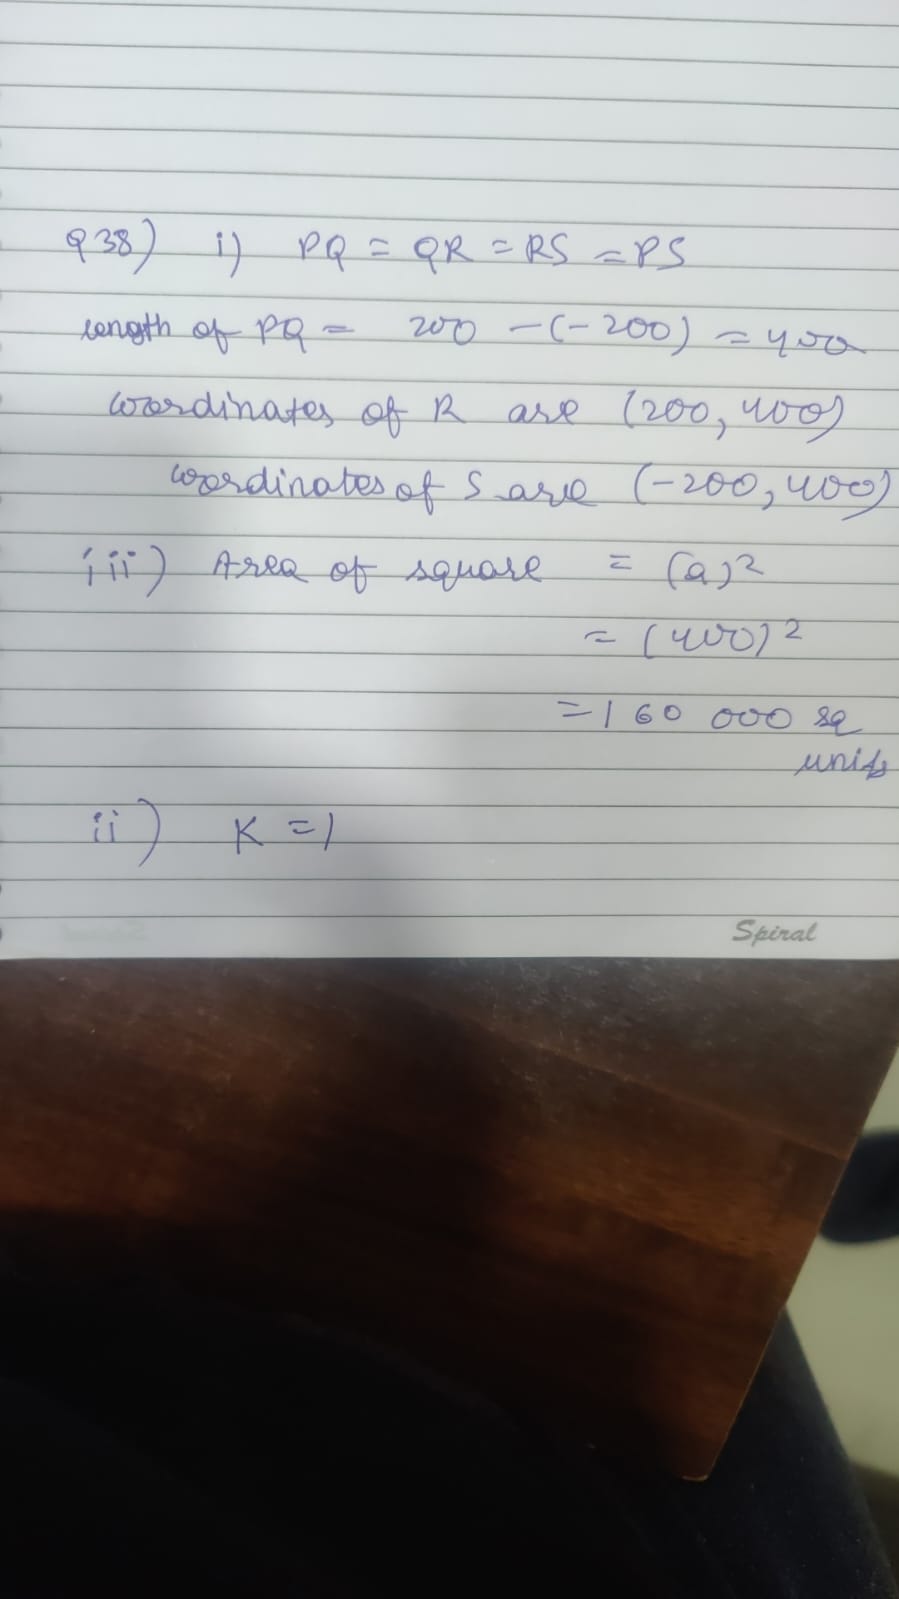 Q38) i) PQ = QR = RS = PS
length of PQ = 200 - (-200) = 400
coordinates of R are (200, 400)
coordinates of S are (-200, 400)
iii) Area of square = (a)²
= (400)²
= 160 000 sq
units
ii) K = 1
Spiral